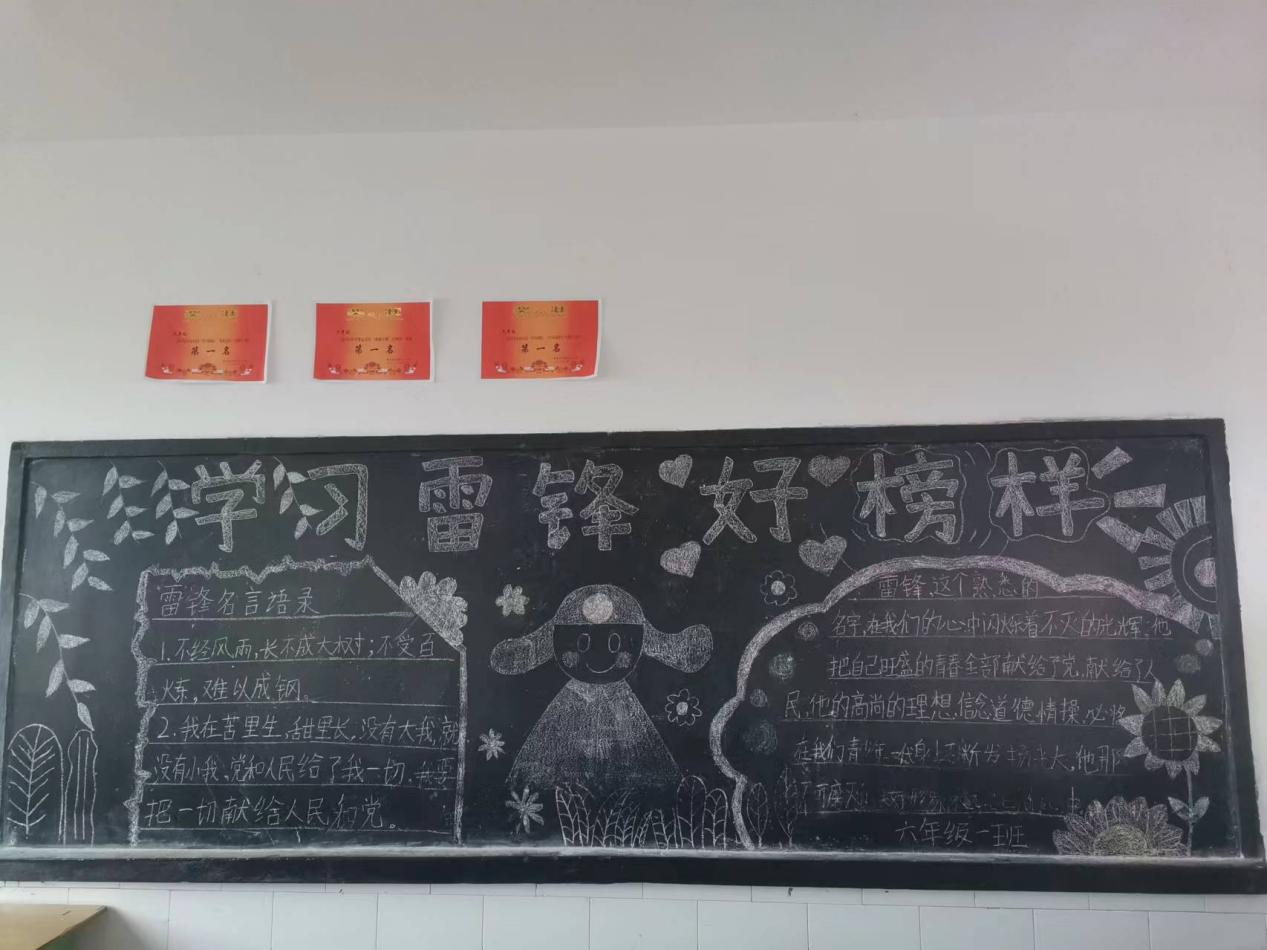 第一名
第一名
第一名
学习雷锋好榜样
雷锋名言语录
1.不经风雨,长不成大树;不受百
炼,难以成钢。
2.我在苦里生,甜里长,没有大我,就
没有小我,党和人民给了我一切,我要
把一切献给人民和党。
雷锋,这个熟悉的
名字,在我们的心中闪烁着不灭的光辉,他
把自己旺盛的青春全部献给了党,献给了人
民,他的高尚的理想,信念,道德,情操,必将
在我们青少年一代身上不断发扬光大,他那
六年级一班